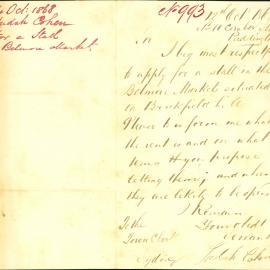 Oct. 1868
Judah Cohen
for a Stall
Belmore Market
No 993
Oct
Paddington
Sir
I beg most respect
to apply for a stall in the
Belmore Market situated
on Brickfield
to inform me what
the rent is and on what
terms you propose
letting them; and when
they are likely to be open
I Remain
Your obedt
servant
To the
Town Clerk
Sydney
Judah Cohen